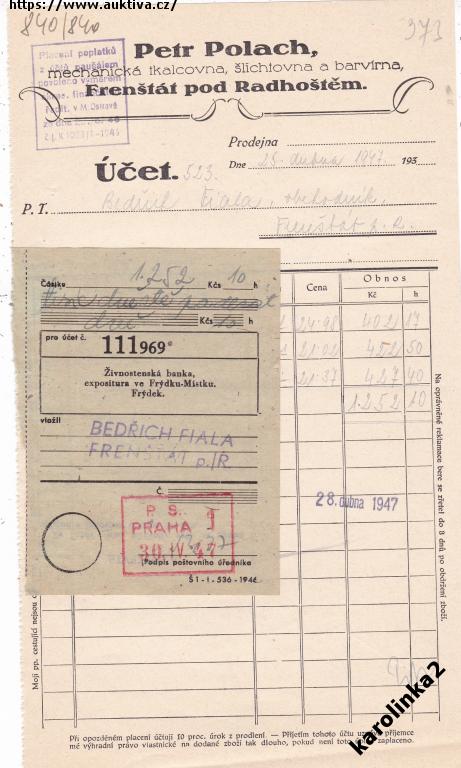 https://www.auktiva.cz/
840/840
373
Placení poplatků
z účtů paušálem
povoleno výměrem
Petr Polach,
mechanická tkalcovna, šlichtovna a barvírna,
Frenštát pod Radhoštěm.
Prodejna
Účet. 523
Dne 28. dubna 1947 193
P. T. Bedřich Fiala, obchodník,
Frenštát p. R.
Cena
Obnos
Kč h
24·98 402 17
21·02 452 50
21·37 427 40
1.252 10
Částka 1.252 Kčs 10 h
Kčs h
pro účet č. 111969
Živnostenská banka,
expositura ve Frýdku-Místku.
Frýdek.
vložil
BEDŘICH FIALA
FRENŠTÁT p./R.
Č.
P. S.
PRAHA 1
30. IV. 47
(Podpis poštovního úředníka
Š 1 - I. 536 - 1946
28. dubna 1947
Na oprávněné reklamace bere se zřetel do 8 dnů po obdržení zboží.
Moji pp. cestující nejsou
Při opožděném placení účtuji 10 proc. úrok z prodlení. — Přijetím tohoto účtu
mé výhradní právo vlastnické na dodané zboží tak dlouho, pokud není toto
zaplaceno.
karolinka2